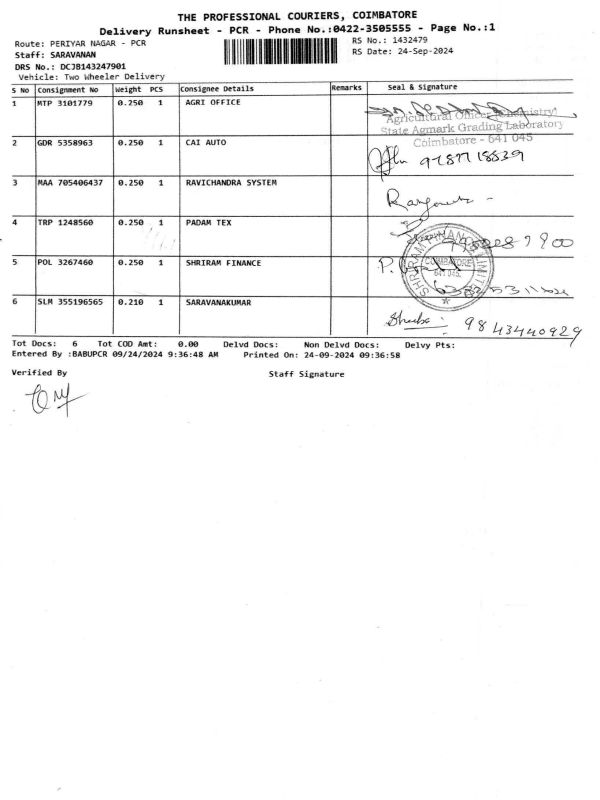 THE PROFESSIONAL COURIERS, COIMBATORE
Delivery Runsheet - PCR - Phone No.:0422-3505555 - Page No.:1
Route: PERIYAR NAGAR - PCR
RS No.: 1432479
Staff: SARAVANAN
RS Date: 24-Sep-2024
DRS No.: DCJB143247901
Vehicle: Two Wheeler Delivery
S No Consignment No Weight PCS Consignee Details Remarks Seal & Signature
1 MTP 3101779 0.250 1 AGRI OFFICE
Agricultural Officer Chemistry)
State Agmark Grading Laboratory
Coimbatore - 641 045
2 GDR 5358963 0.250 1 CAI AUTO
3 MAA 705406437 0.250 1 RAVICHANDRA SYSTEM
4 TRP 1248560 0.250 1 PADAM TEX
5 POL 3267460 0.250 1 SHRIRAM FINANCE
COIMBATORE
641 045
6 SLM 355196565 0.210 1 SARAVANAKUMAR
9843440929
Tot Docs: 6 Tot COD Amt: 0.00 Delvd Docs: Non Delvd Docs: Delvy Pts:
Entered By :BABUPCR 09/24/2024 9:36:48 AM Printed On: 24-09-2024 09:36:58
Verified By Staff Signature